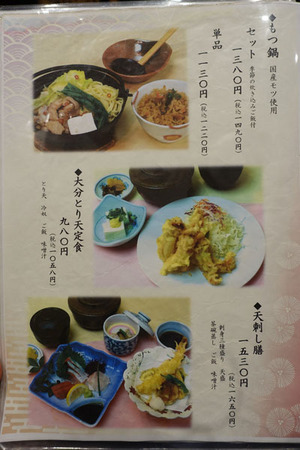 ◆もつ鍋 国産モツ使用
セット 季節の炊き込みご飯付
一三八〇円(税込一四九〇円)
単品
一一三〇円(税込一二二〇円)
◆大分とり天定食
九八〇円
(税込一〇五八円)
とり天 冷奴 ご飯 味噌汁
◆天刺し膳
一五三〇円
(税込一六五〇円)
刺身三種盛り 天盛
茶碗蒸し ご飯 味噌汁